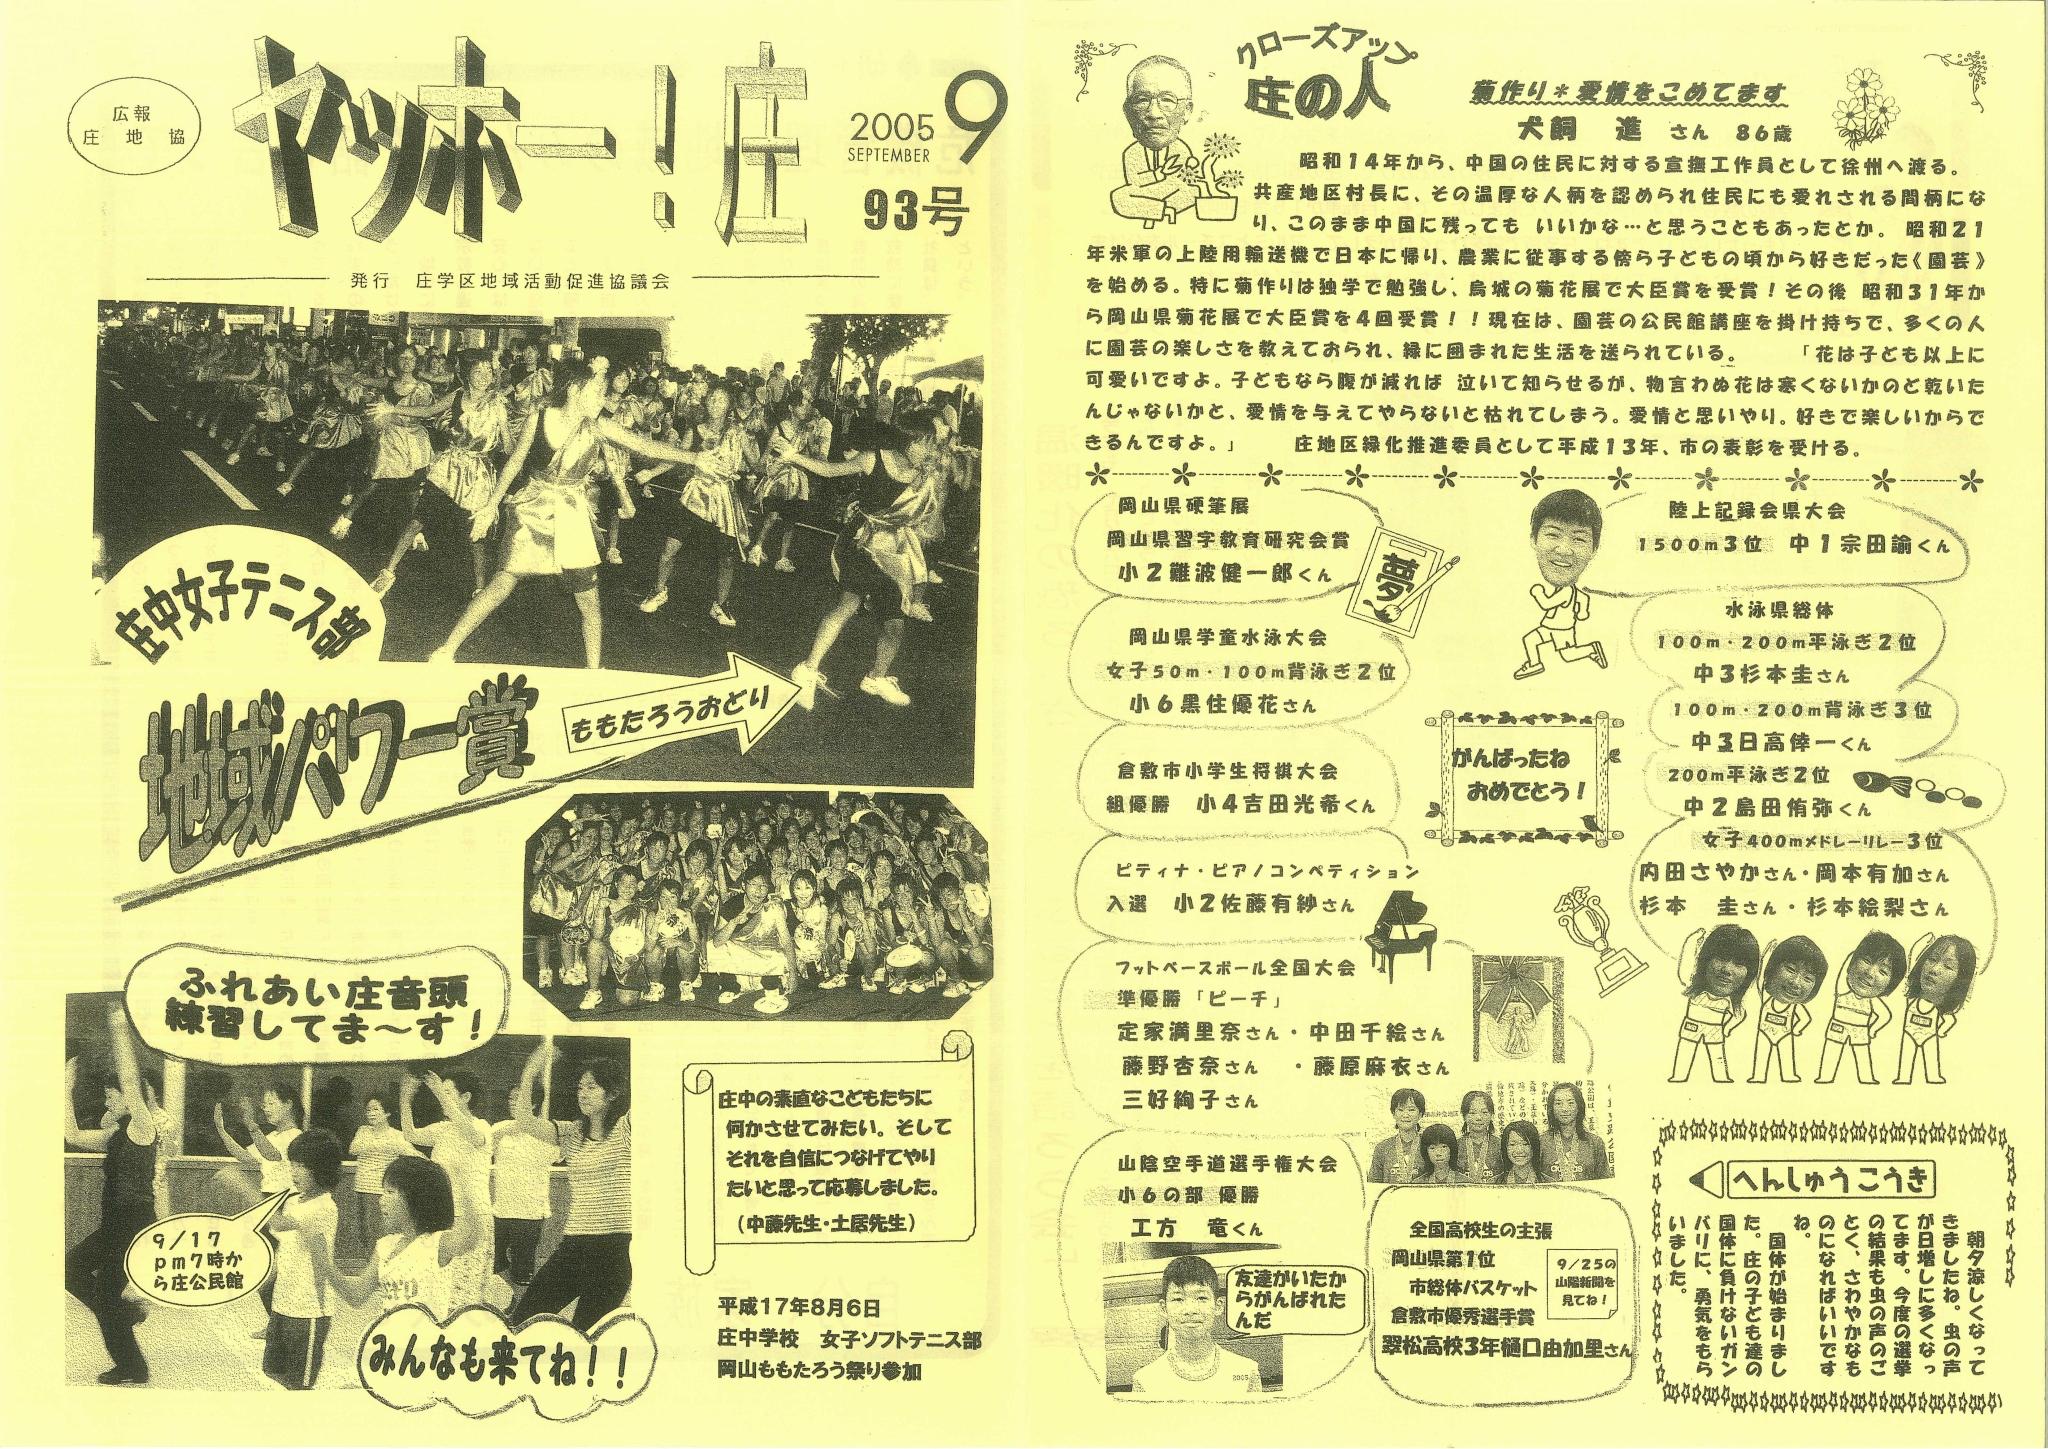 広報
庄地協
ヤッホー!庄
2005 9
SEPTEMBER
93号
発行 庄学区地域活動促進協議会
庄中女子テニス部
地域パワー賞
ももたろうおどり
ふれあい庄音頭
練習してま～す!
9/17
pm7時か
ら庄公民館
みんなも来てね!!
庄中の素直なこどもたちに
何かさせてみたい。そして
それを自信につなげてやり
たいと思って応募しました。
(中藤先生・土居先生)
平成17年8月6日
庄中学校 女子ソフトテニス部
岡山ももたろう祭り参加
クローズアップ
庄の人
菊作り*愛情をこめてます
犬飼 進 さん 86歳
昭和14年から、中国の住民に対する宣撫工作員として徐州へ渡る。
共産地区村長に、その温厚な人柄を認められ住民にも愛れされる間柄にな
り、このまま中国に残っても いいかな…と思うこともあったとか。 昭和21
年米軍の上陸用輸送機で日本に帰り、農業に従事する傍ら子どもの頃から好きだった《園芸》
を始める。特に菊作りは独学で勉強し、烏城の菊花展で大臣賞を受賞!その後 昭和31年か
ら岡山県菊花展で大臣賞を4回受賞!!現在は、園芸の公民館講座を掛け持ちで、多くの人
に園芸の楽しさを教えておられ、緑に囲まれた生活を送られている。 「花は子ども以上に
可愛いですよ。子どもなら腹が減れば 泣いて知らせるが、物言わぬ花は寒くないかのど乾いた
んじゃないかと、愛情を与えてやらないと枯れてしまう。愛情と思いやり。好きで楽しいからで
きるんですよ。」 庄地区緑化推進委員として平成13年、市の表彰を受ける。
岡山県硬筆展
岡山県習字教育研究会賞
小2難波健一郎くん
夢
岡山県学童水泳大会
女子50m・100m背泳ぎ2位
小6黒住優花さん
倉敷市小学生将棋大会
組優勝 小4吉田光希くん
ピティナ・ピアノコンペティション
入選 小2佐藤有紗さん
フットベースボール全国大会
準優勝「ピーチ」
定家満里奈さん・中田千絵さん
藤野杏奈さん ・藤原麻衣さん
三好絢子さん
山陰空手道選手権大会
小6の部 優勝
工方 竜くん
友達がいたか
らがんばれた
んだ
陸上記録会県大会
1500m3位 中1宗田諭くん
水泳県総体
100m・200m平泳ぎ2位
中3杉本圭さん
100m・200m背泳ぎ3位
中3日高倖一くん
200m平泳ぎ2位
中2島田侑弥くん
女子400mメドレーリレー3位
内田さやかさん・岡本有加さん
杉本 圭さん・杉本絵梨さん
がんばったね
おめでとう!
全国高校生の主張
岡山県第1位
市総体バスケット
倉敷市優秀選手賞
翠松高校3年樋口由加里さん
9/25の
山陽新聞を
見てね!
へんしゅうこうき
朝夕涼しくなって
きましたね。虫の声
が日増しに多くなっ
てます。今度の選挙
の結果も虫の声のご
とく、さわやかなも
のになればいいです
ね。
国体が始まりまし
た。庄の子ども達の
国体に負けないガン
バリに、勇気をもら
いました。